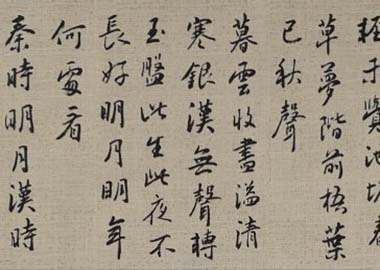 輕未覺池塘春
草夢階前梧葉
已秋聲
暮雲收盡溢清
寒銀漢無聲轉
玉盤此生此夜不
長好明月明年
何處看
秦時明月漢時